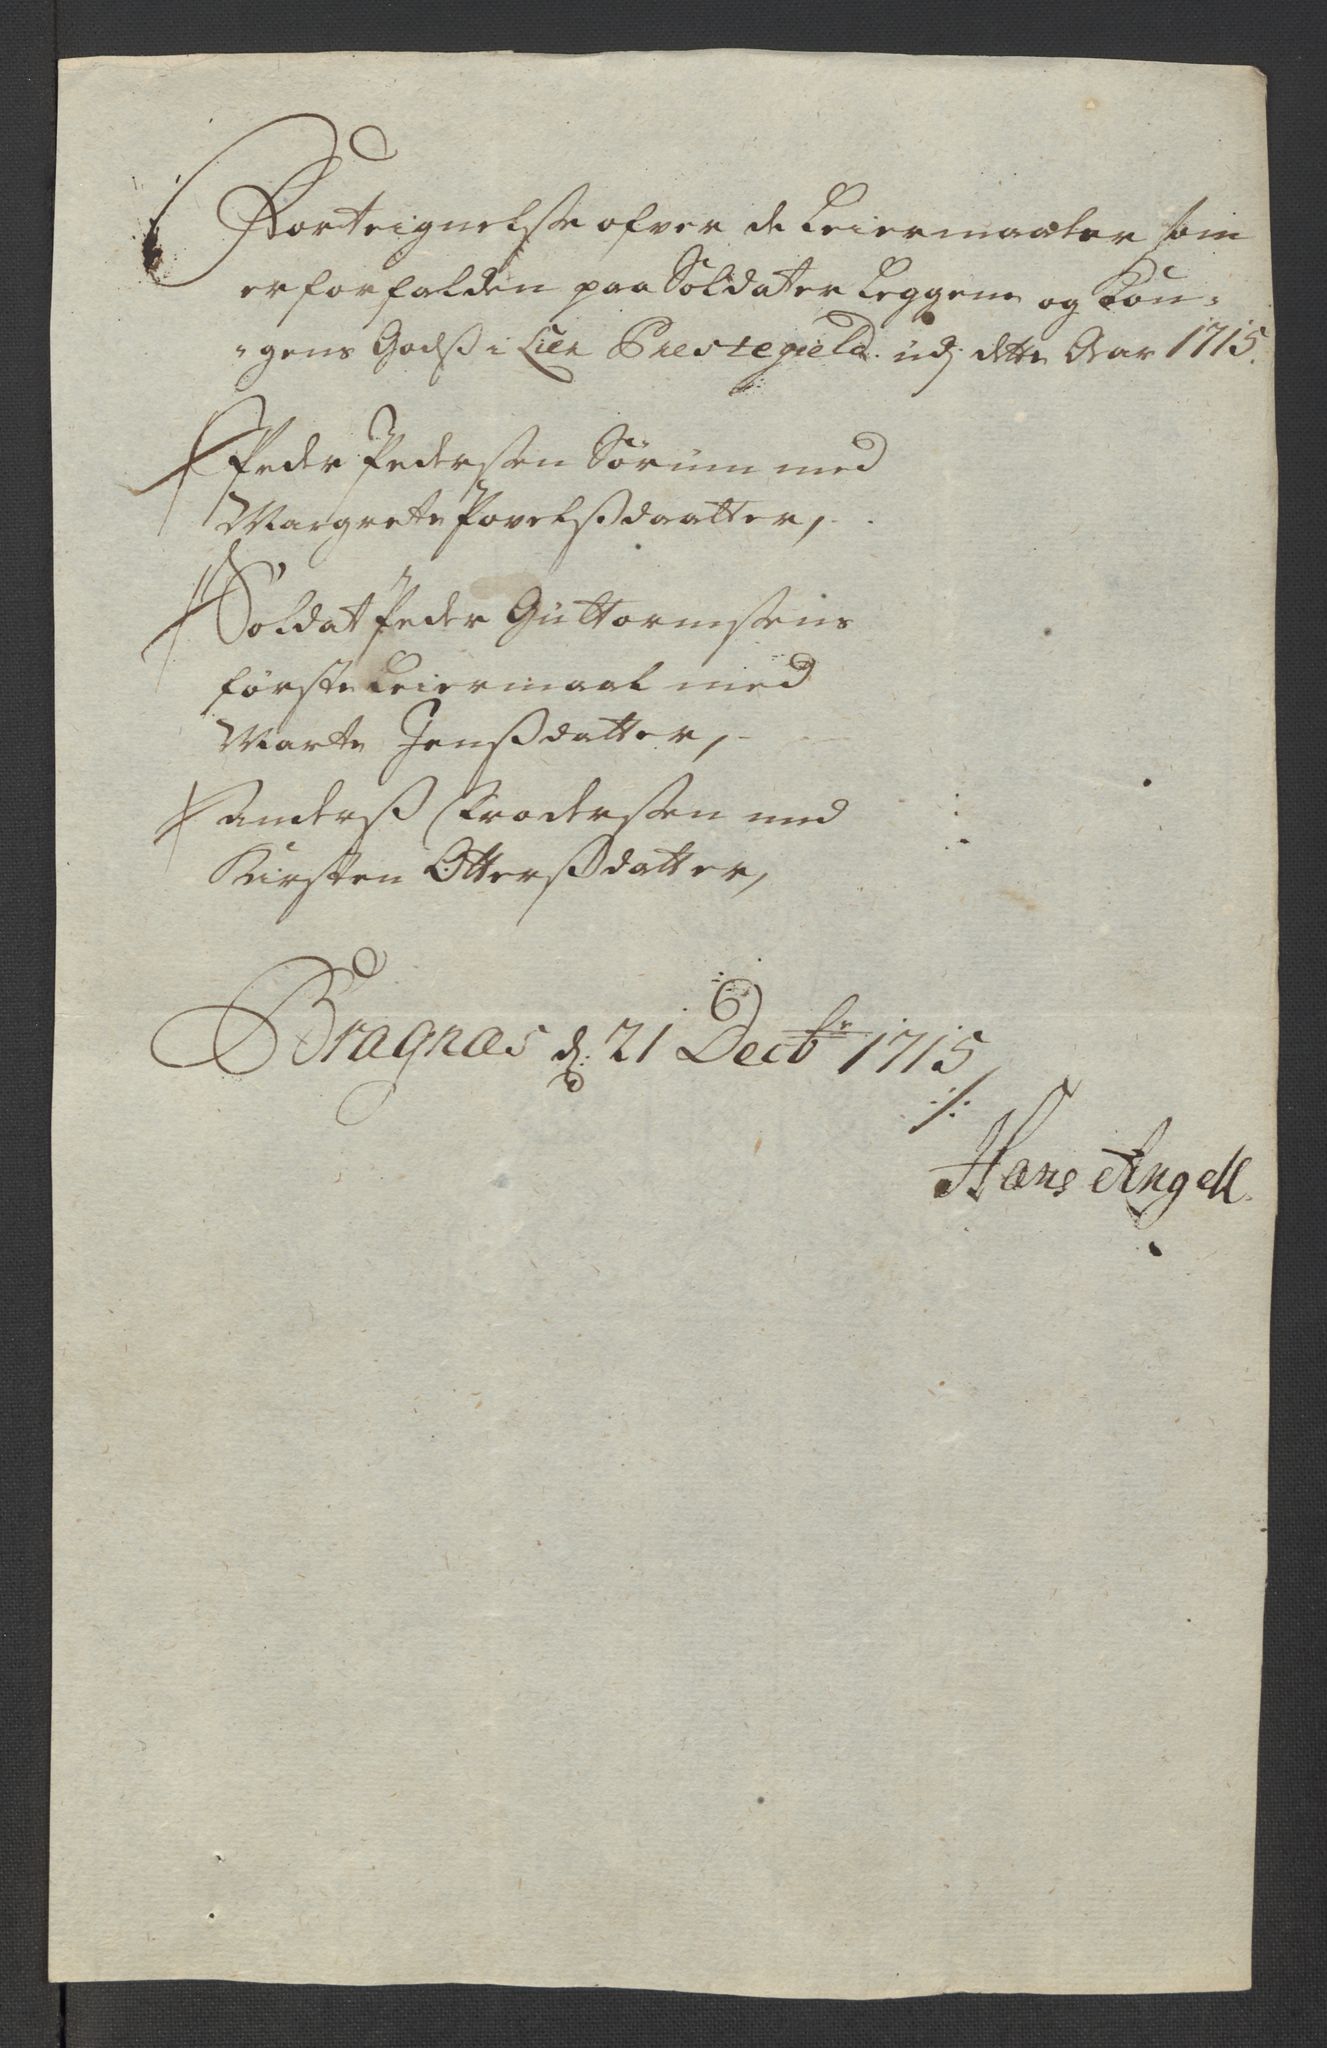 Forteignelsse ofver de Leiermaaler som
er forfalden paa Soldater Leggene og Kon=
=gens Godß i Lier Prestegield udj dette Aar 1715.
Peder Pedersen Sørum med
Margrete Povelsßdaatter,
Soldat Peder Guttormsens
første Leiermaal med
Marte Jenßdatter,
Anderß Brodersen med
Kirsten Ottersßdatter,
Bragnæs d: 21 Decbr 1715
Hans Angell